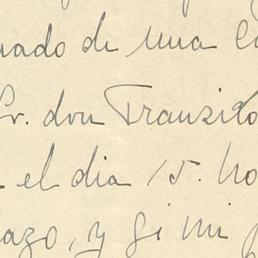 nado de una
Sr. don Franzisko
el dia 15. ho
lazo, y si mi